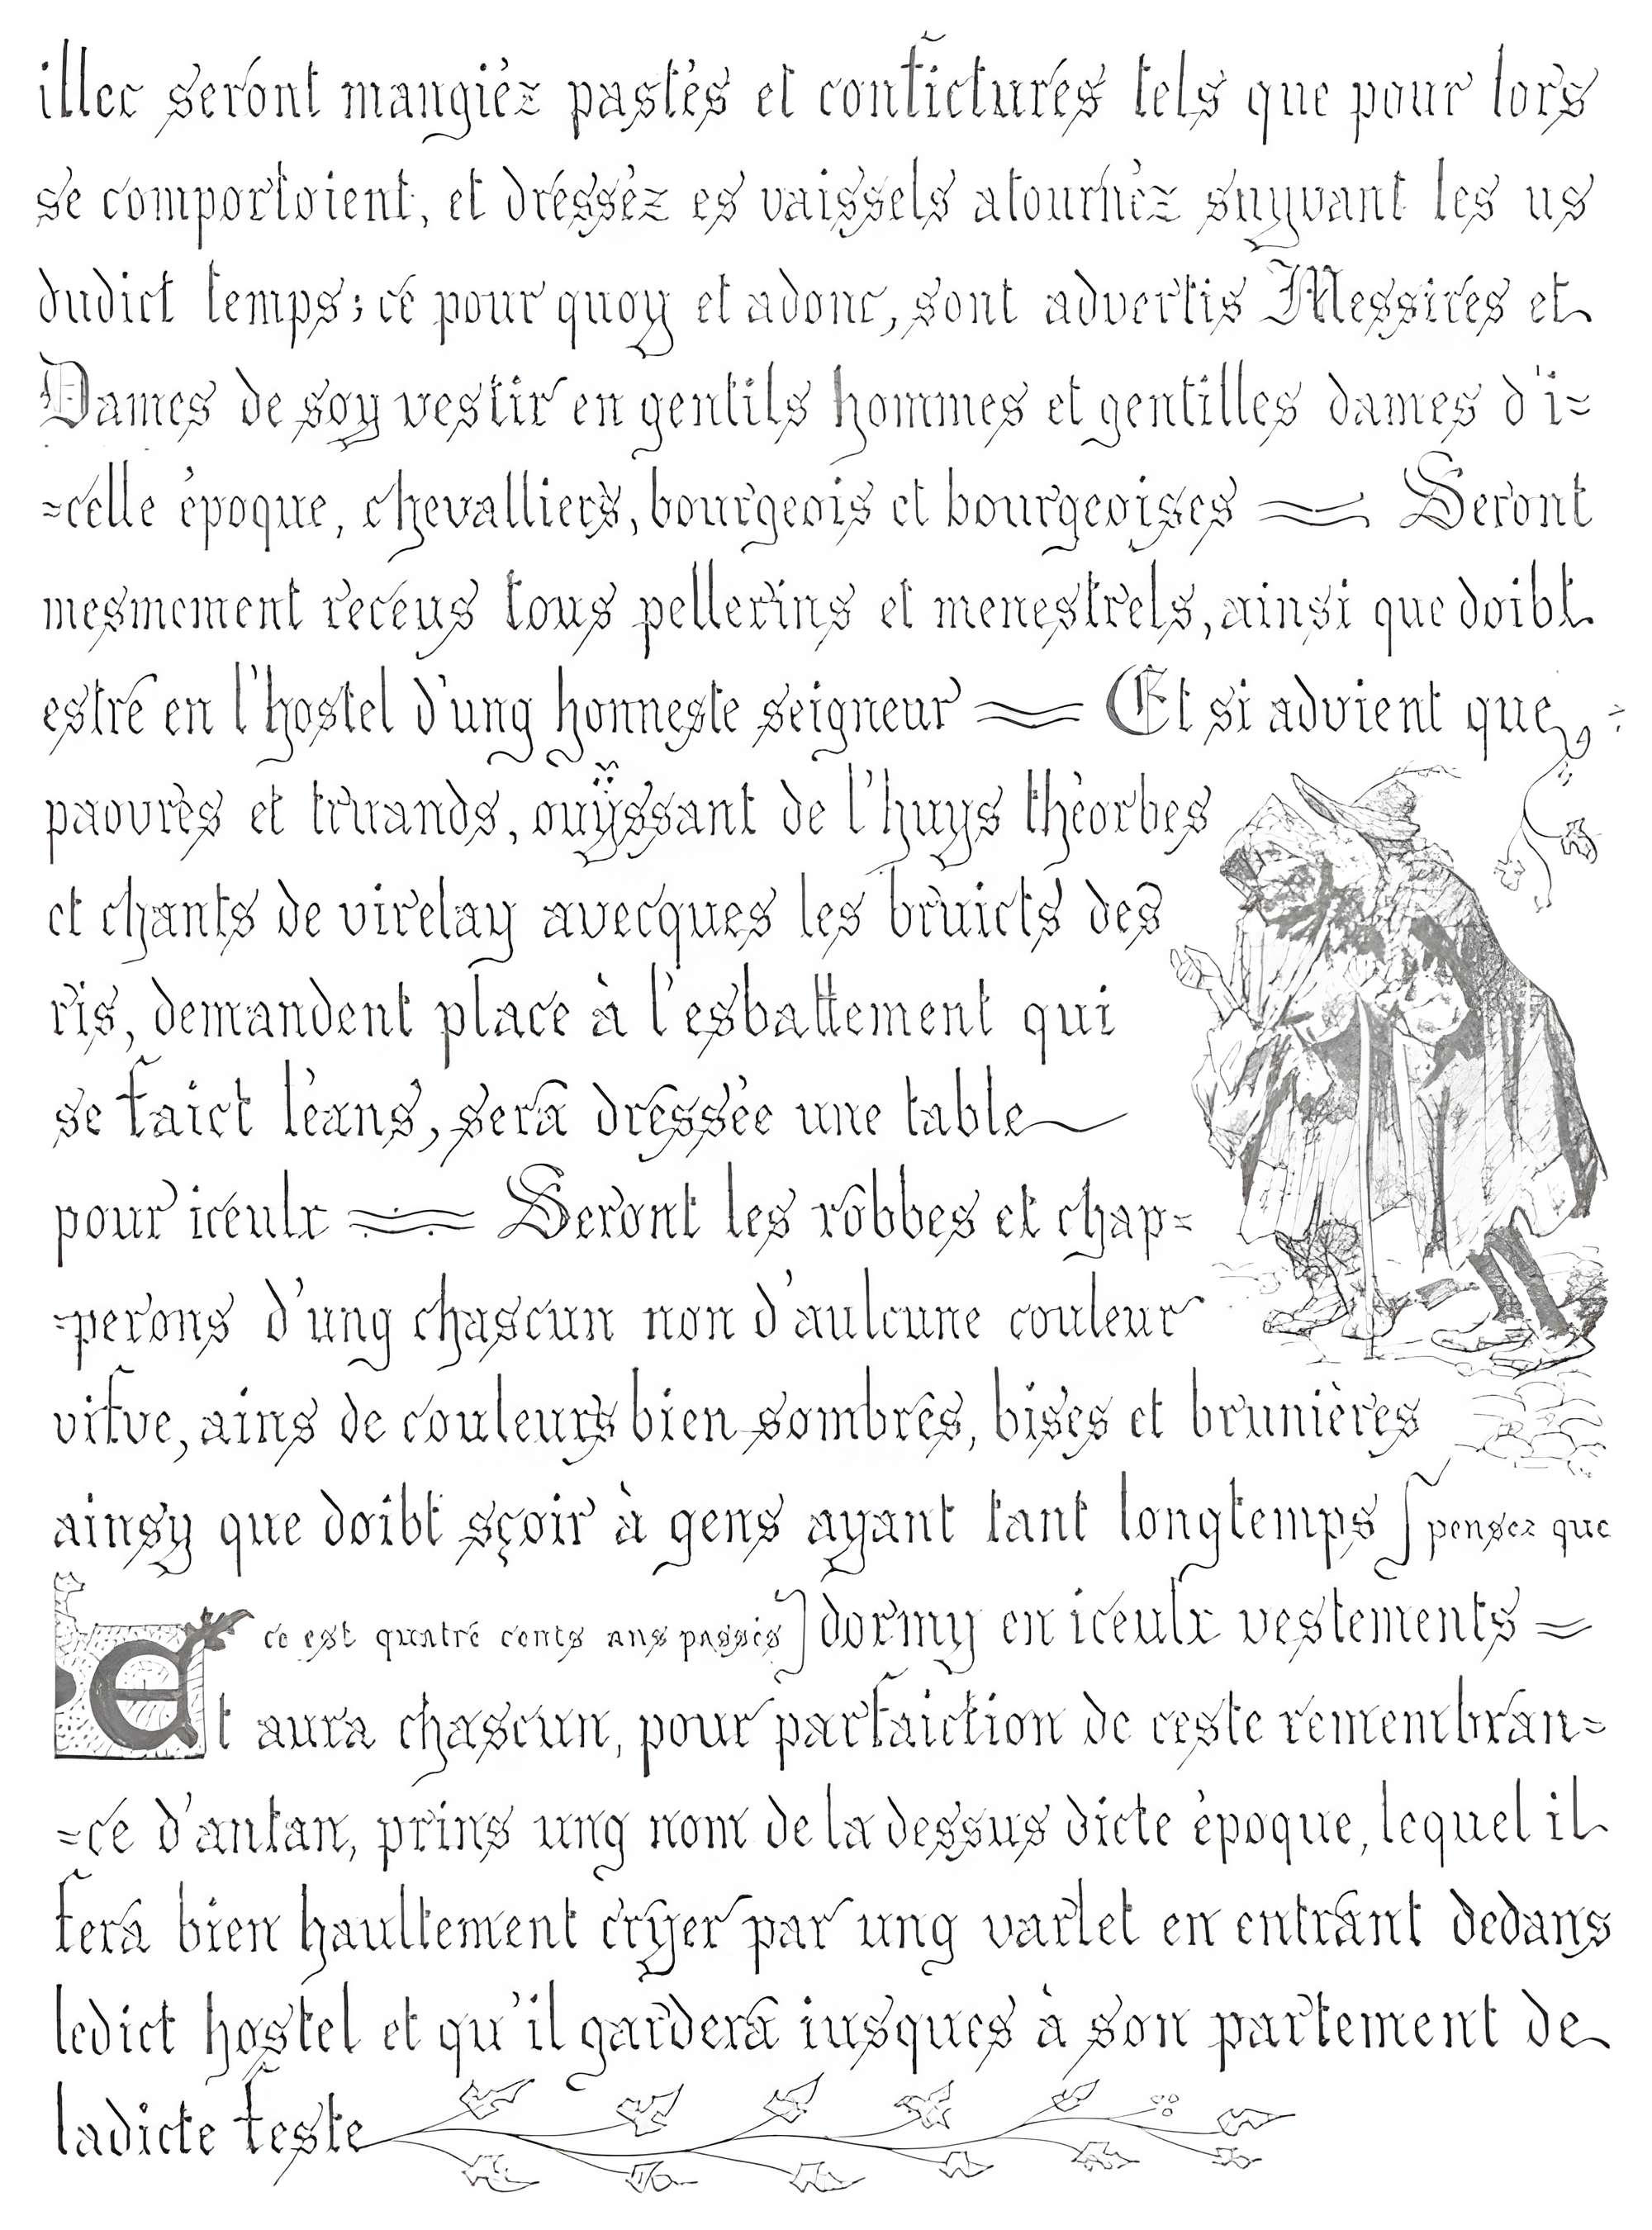 illec seront mangiéz pastés et confictures tels que pour lors
se comportoient, et dresséz es vaissels atournéz suyvant les us
dudict temps; cé pour quoy et adonc, sont advertis Messires et
Dames de soy vestir en gentils hommes et gentilles dames d'i=
=celle époque, chevalliers, bourgeois et bourgeoises = Seront
mesmement recéus tous pellerins et menestrels, ainsi que doibt
estré en l'hostel d'ung honneste seigneur = Et si advient que
paovrès et truands, ouÿssant de l'huys théorbes
et chants de virelay avecques les bruicts des
ris, demandent place à l'esbattement qui
se faict léans, sera dressée une table
pour iceulx = Seront les robbes et chap=
=perons d'ung chascun non d'aulcune couleur
vifve, ains de couleurs bien sombrés, bises et brunières
ainsy que doibt sçoir à gens ayant tant longtemps [pensez que
ce est quatré cents ans passés] dormy en iceulx vestements =
Et aura chascun, pour parfaiction de ceste remembran=
=cé d'antan, prins ung nom de la dessus dicte époque, lequel il
fera bien haultement cryer par ung varlet en entrant dedans
ledict hostel et qu'il gardera iusques à son partement de
ladicte feste